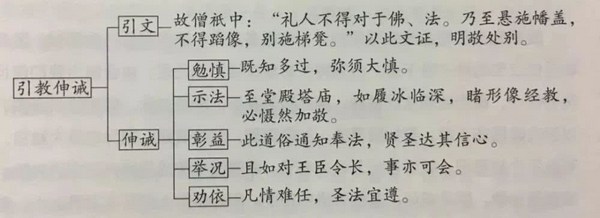 引文
故僧祇中：“礼人不得对于佛、法。乃至悬施幡盖，
不得蹈像，别施梯凳。”以此文证，明敬处别。
引教伸诫
勉慎
既知多过，弥须大慎。
示法
至堂殿塔庙，如履冰临深，睹形像经教，
必慑然加敬。
伸诫
彰益
此道俗通知奉法，贤圣达其信心。
举况
且如对王臣令长，事亦可会。
劝依
凡情难任，圣法宜遵。